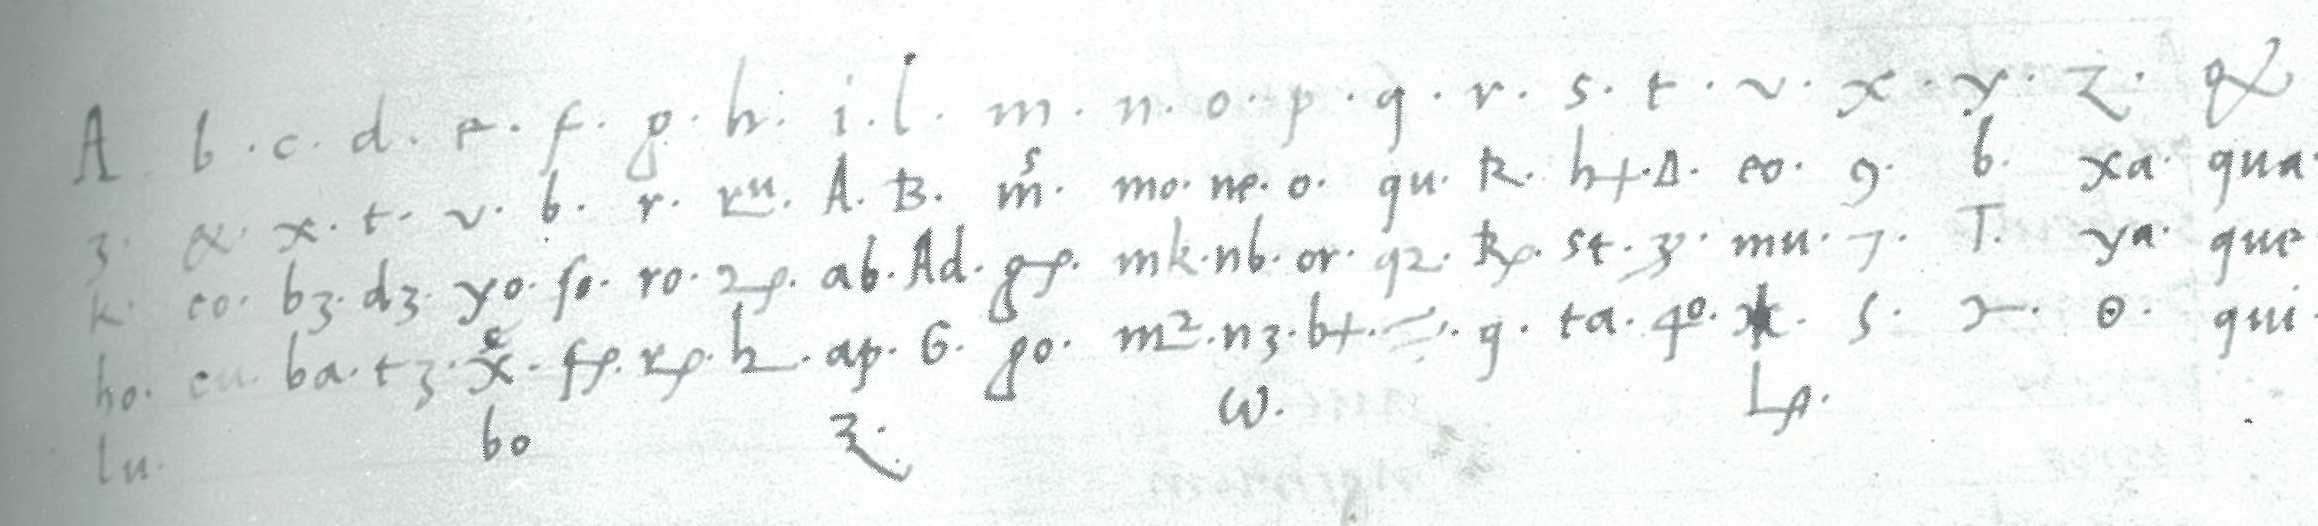 A b · c · d · e · f · g · h · i · l · m · n · o · p · q · r · s · t · v · x · y · z · &
3 · α · x · t · v · b · r · ru · A · B · m · mo · ne · o · qu · R · h+ · Δ · eo · 9 · b · xa · qua ·
k · eo · b3 · d3 · yo · so · ro · ab · Ad · mk · nb · or · q2 · st · mu · T · ya · que ·
ho · cu · ba · t3 · x · h · ap · G · go · m2 · n3 · b+ · g · ta · 4o · s · θ · qui ·
lu · bo 3 · ω ·